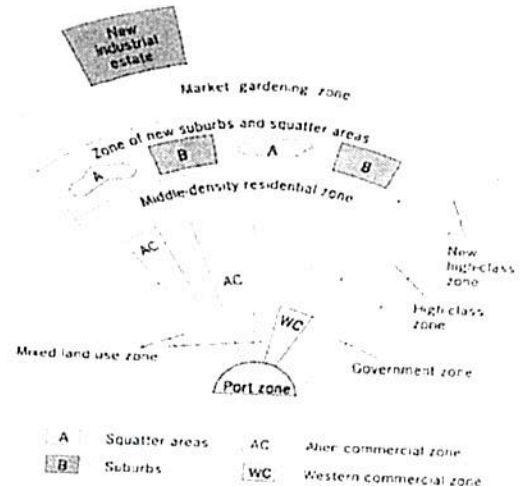 New
industrial
estate
Market gardening zone
Zone of new suburbs and squatter areas
A
B
A
B
Middle-density residential zone
AC
AC
New
high-class
zone
High class
zone
WC
Mixed land use zone
Government zone
Port zone
A Squatter areas
AC Alien commercial zone
B Suburbs
WC Western commercial zone